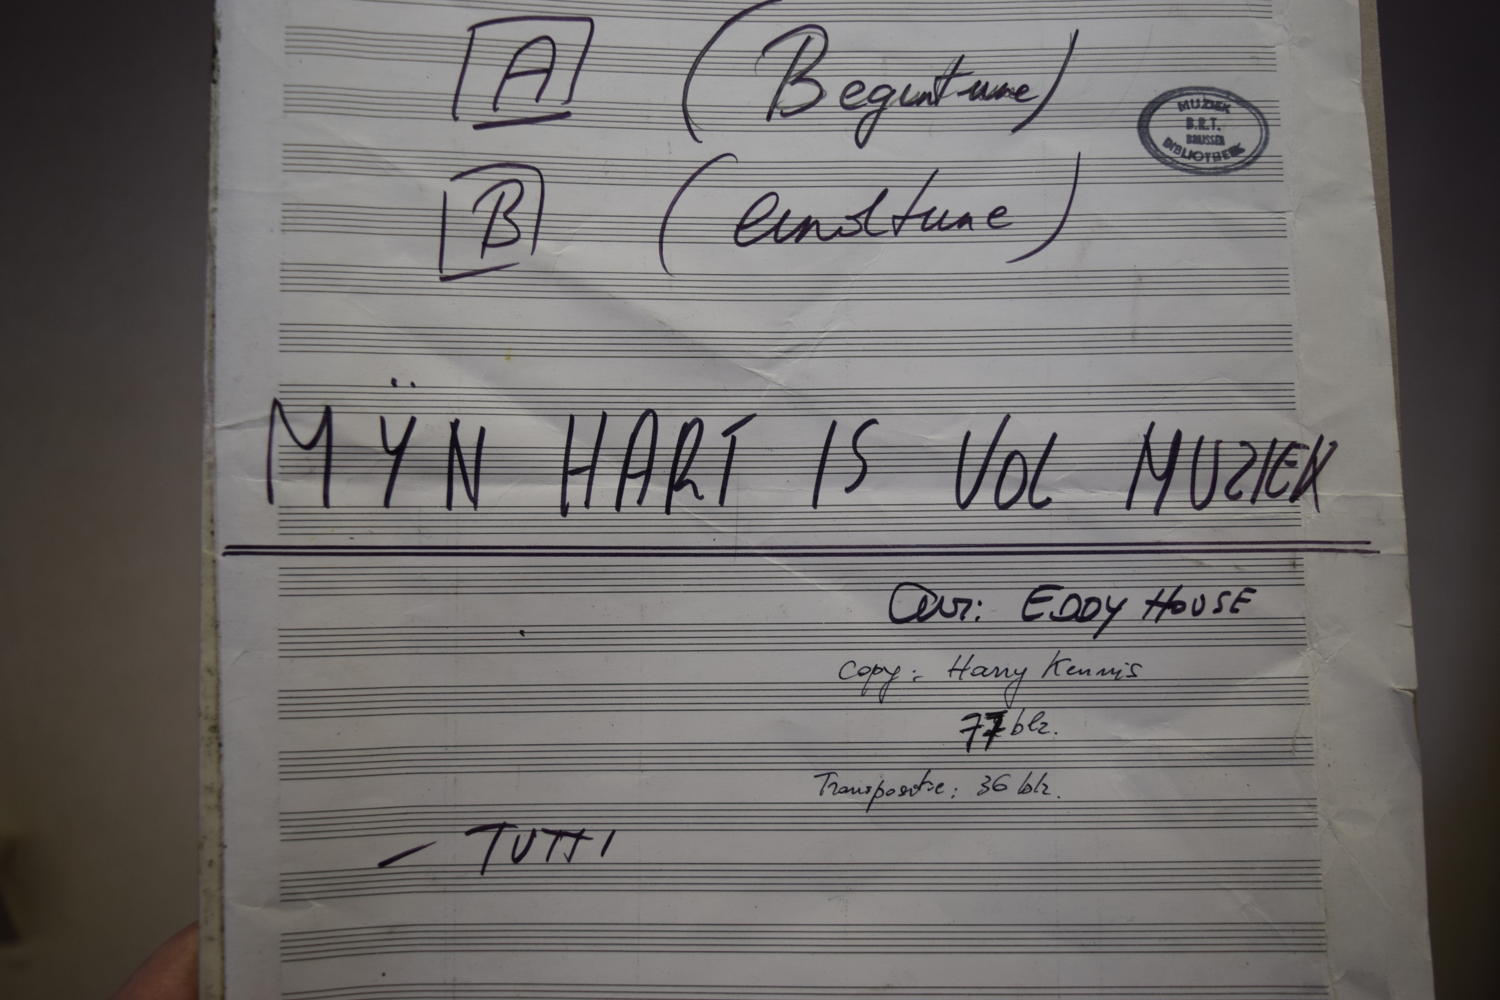 A (Begintune)
MUZIEK
B.R.T.
BRUSSEL
BIBLIOTHEEK
B (eindtune)
MŸN HART IS VOL MUZIEK
Arr: EDDY HOUSE
Copy: Harry Kennis
77 blz.
Transpositie: 36 blz.
- TUTTI